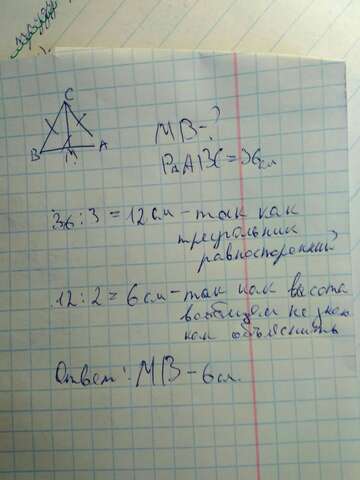 C
B M A
MB-?
P△ABC=36см
36:3=12см-так как
треугольник
равносторонний
12:2=6см-так как высота
вообщем не знаю
как объяснить
Ответ: MB-6см.